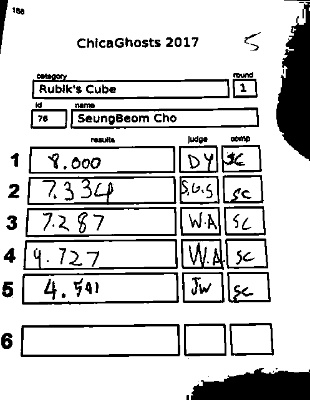 188
ChicaGhosts 2017 5
category round
Rubik's Cube 1
id name
76 SeungBeom Cho
results judge comp
1 8.000 DY SC
2 7.334 S.G.S SC
3 7.287 W.A SC
4 9.727 W.A SC
5 4.591 JW SC
6